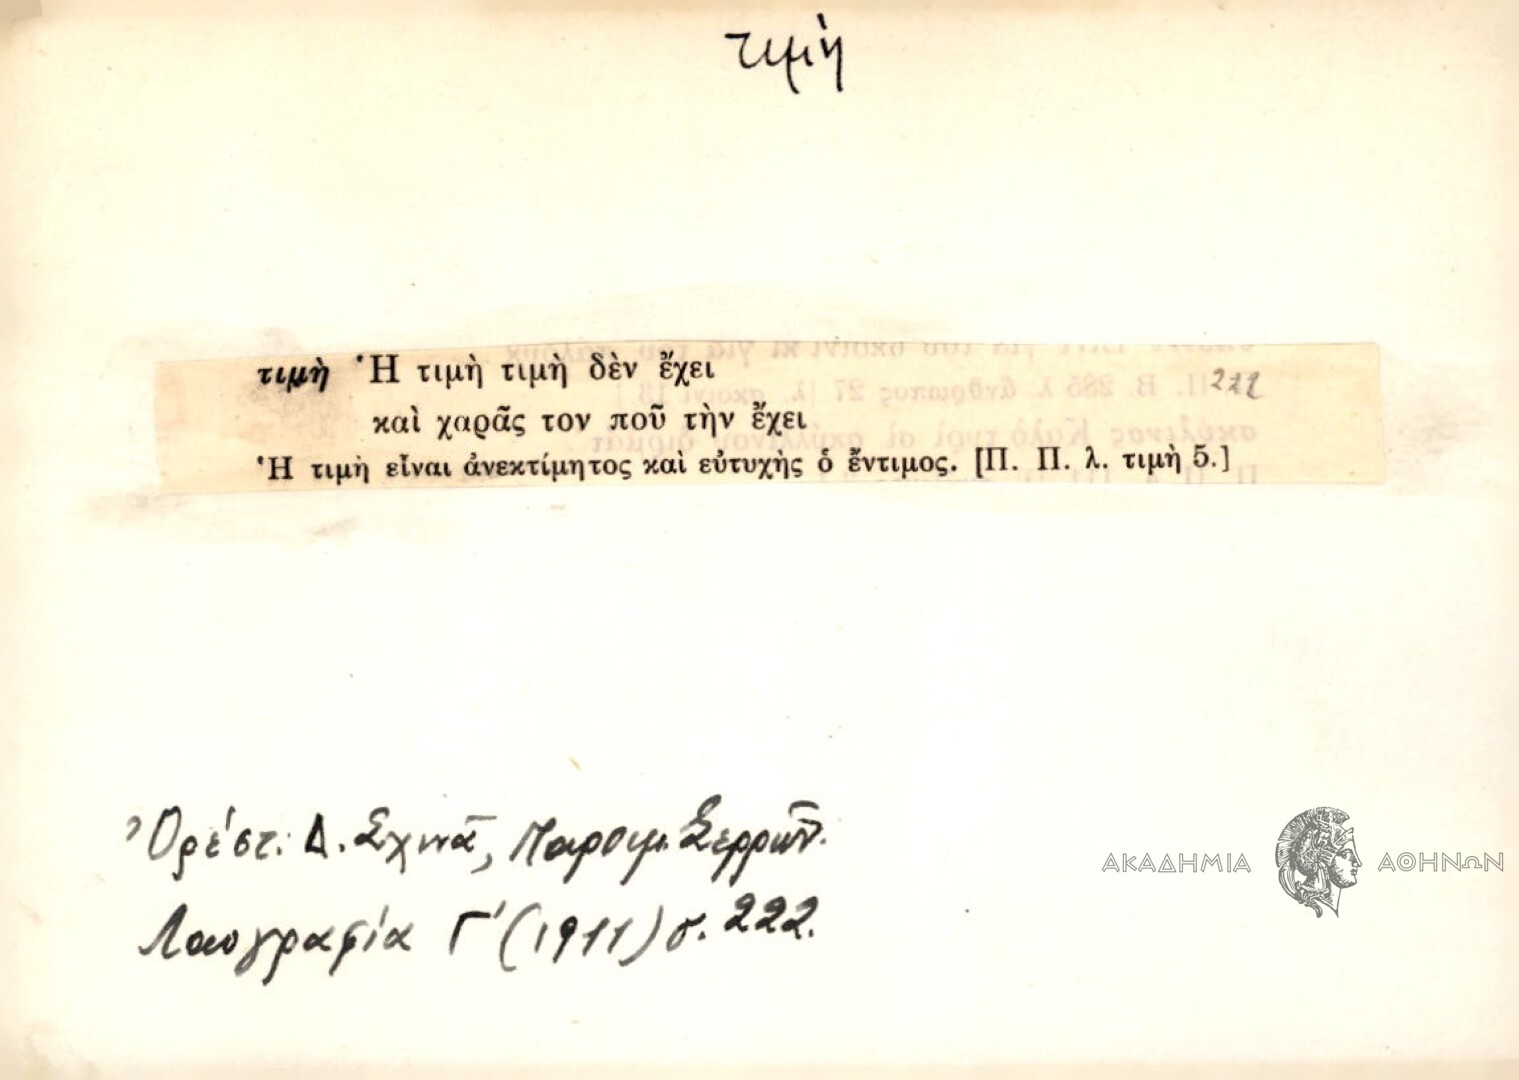 τιμὴ
τιμὴ Ἡ τιμὴ τιμὴ δὲν ἔχει
222
καὶ χαρᾶς τον ποῦ τὴν ἔχει
Ἡ τιμὴ εἶναι ἀνεκτίμητος καὶ εὐτυχὴς ὁ ἔντιμος. [Π. Π. λ. τιμὴ 5.]
Ὀρέστ. Δ. Σχινᾶ, Παροιμ. Σερρῶν.
Λαογραφία Γ' (1911) σ. 222.
ΑΚΑΔΗΜΙΑ ΑΘΗΝΩΝ